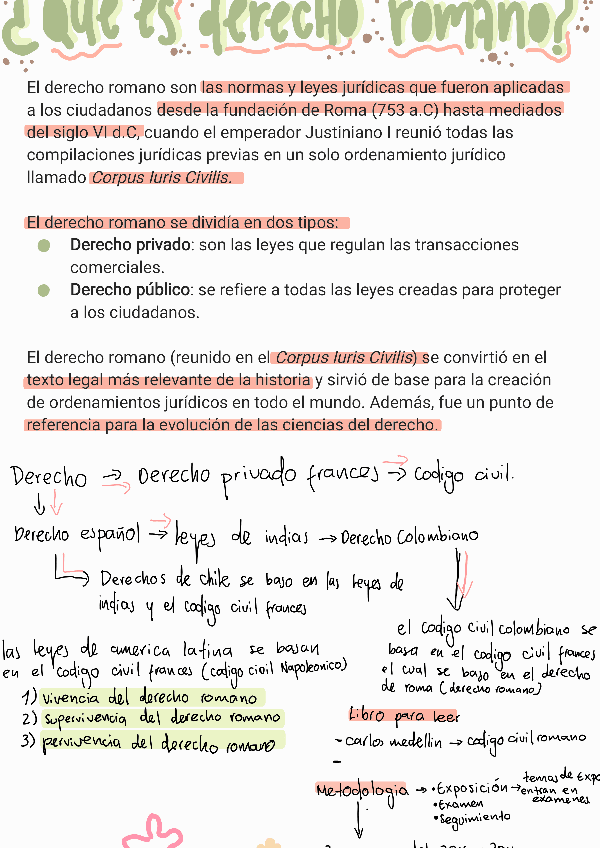 ¿Que es derecho romano?
El derecho romano son las normas y leyes jurídicas que fueron aplicadas
a los ciudadanos desde la fundación de Roma (753 a.C) hasta mediados
del siglo VI d.C, cuando el emperador Justiniano I reunió todas las
compilaciones jurídicas previas en un solo ordenamiento jurídico
llamado Corpus Iuris Civilis.
El derecho romano se dividía en dos tipos:
● Derecho privado: son las leyes que regulan las transacciones
comerciales.
● Derecho público: se refiere a todas las leyes creadas para proteger
a los ciudadanos.
El derecho romano (reunido en el Corpus Iuris Civilis) se convirtió en el
texto legal más relevante de la historia y sirvió de base para la creación
de ordenamientos jurídicos en todo el mundo. Además, fue un punto de
referencia para la evolución de las ciencias del derecho.
Derecho → Derecho privado frances → Codigo civil.
Derecho español → leyes de indias → Derecho Colombiano
Derechos de chile se baso en las leyes de
indias y el codigo civil frances
el codigo civil colombiano se
basa en el codigo civil frances
el cual se baso en el derecho
de roma (derecho romano)
las leyes de america latina se basan
en el codigo civil frances (codigo civil Napoleonico)
1) vivencia del derecho romano
2) supervivencia del derecho romano
3) pervivencia del derecho romano
Libro para leer
- carlos medellin → codigo civil romano
-
Metodologia → •Exposición → temas de Expo
entran en
examenes
•Examen
•Seguimiento